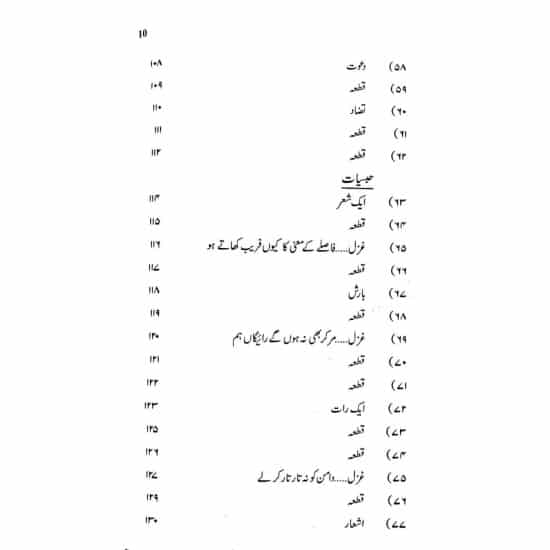 10
۵۸) دعوت ۱۰۸
۵۹) قطعہ ۱۰۹
۶۰) تضاد ۱۱۰
۶۱) قطعہ ۱۱۱
۶۲) قطعہ ۱۱۲
حبسیات
۶۳) ایک شعر ۱۱۴
۶۴) قطعہ ۱۱۵
۶۵) غزل.....فاصلے کے معنی کا کیوں فریب کھاتے ہو ۱۱۶
۶۶) قطعہ ۱۱۷
۶۷) بارش ۱۱۸
۶۸) قطعہ ۱۱۹
۶۹) غزل.....مر کر بھی نہ ہوں گے رائیگاں ہم ۱۲۰
۷۰) قطعہ ۱۲۱
۷۱) قطعہ ۱۲۲
۷۲) ایک رات ۱۲۳
۷۳) قطعہ ۱۲۵
۷۴) قطعہ ۱۲۶
۷۵) غزل.....دامن کو نہ تار تار کر لے ۱۲۷
۷۶) قطعہ ۱۲۹
۷۷) اشعار ۱۳۰